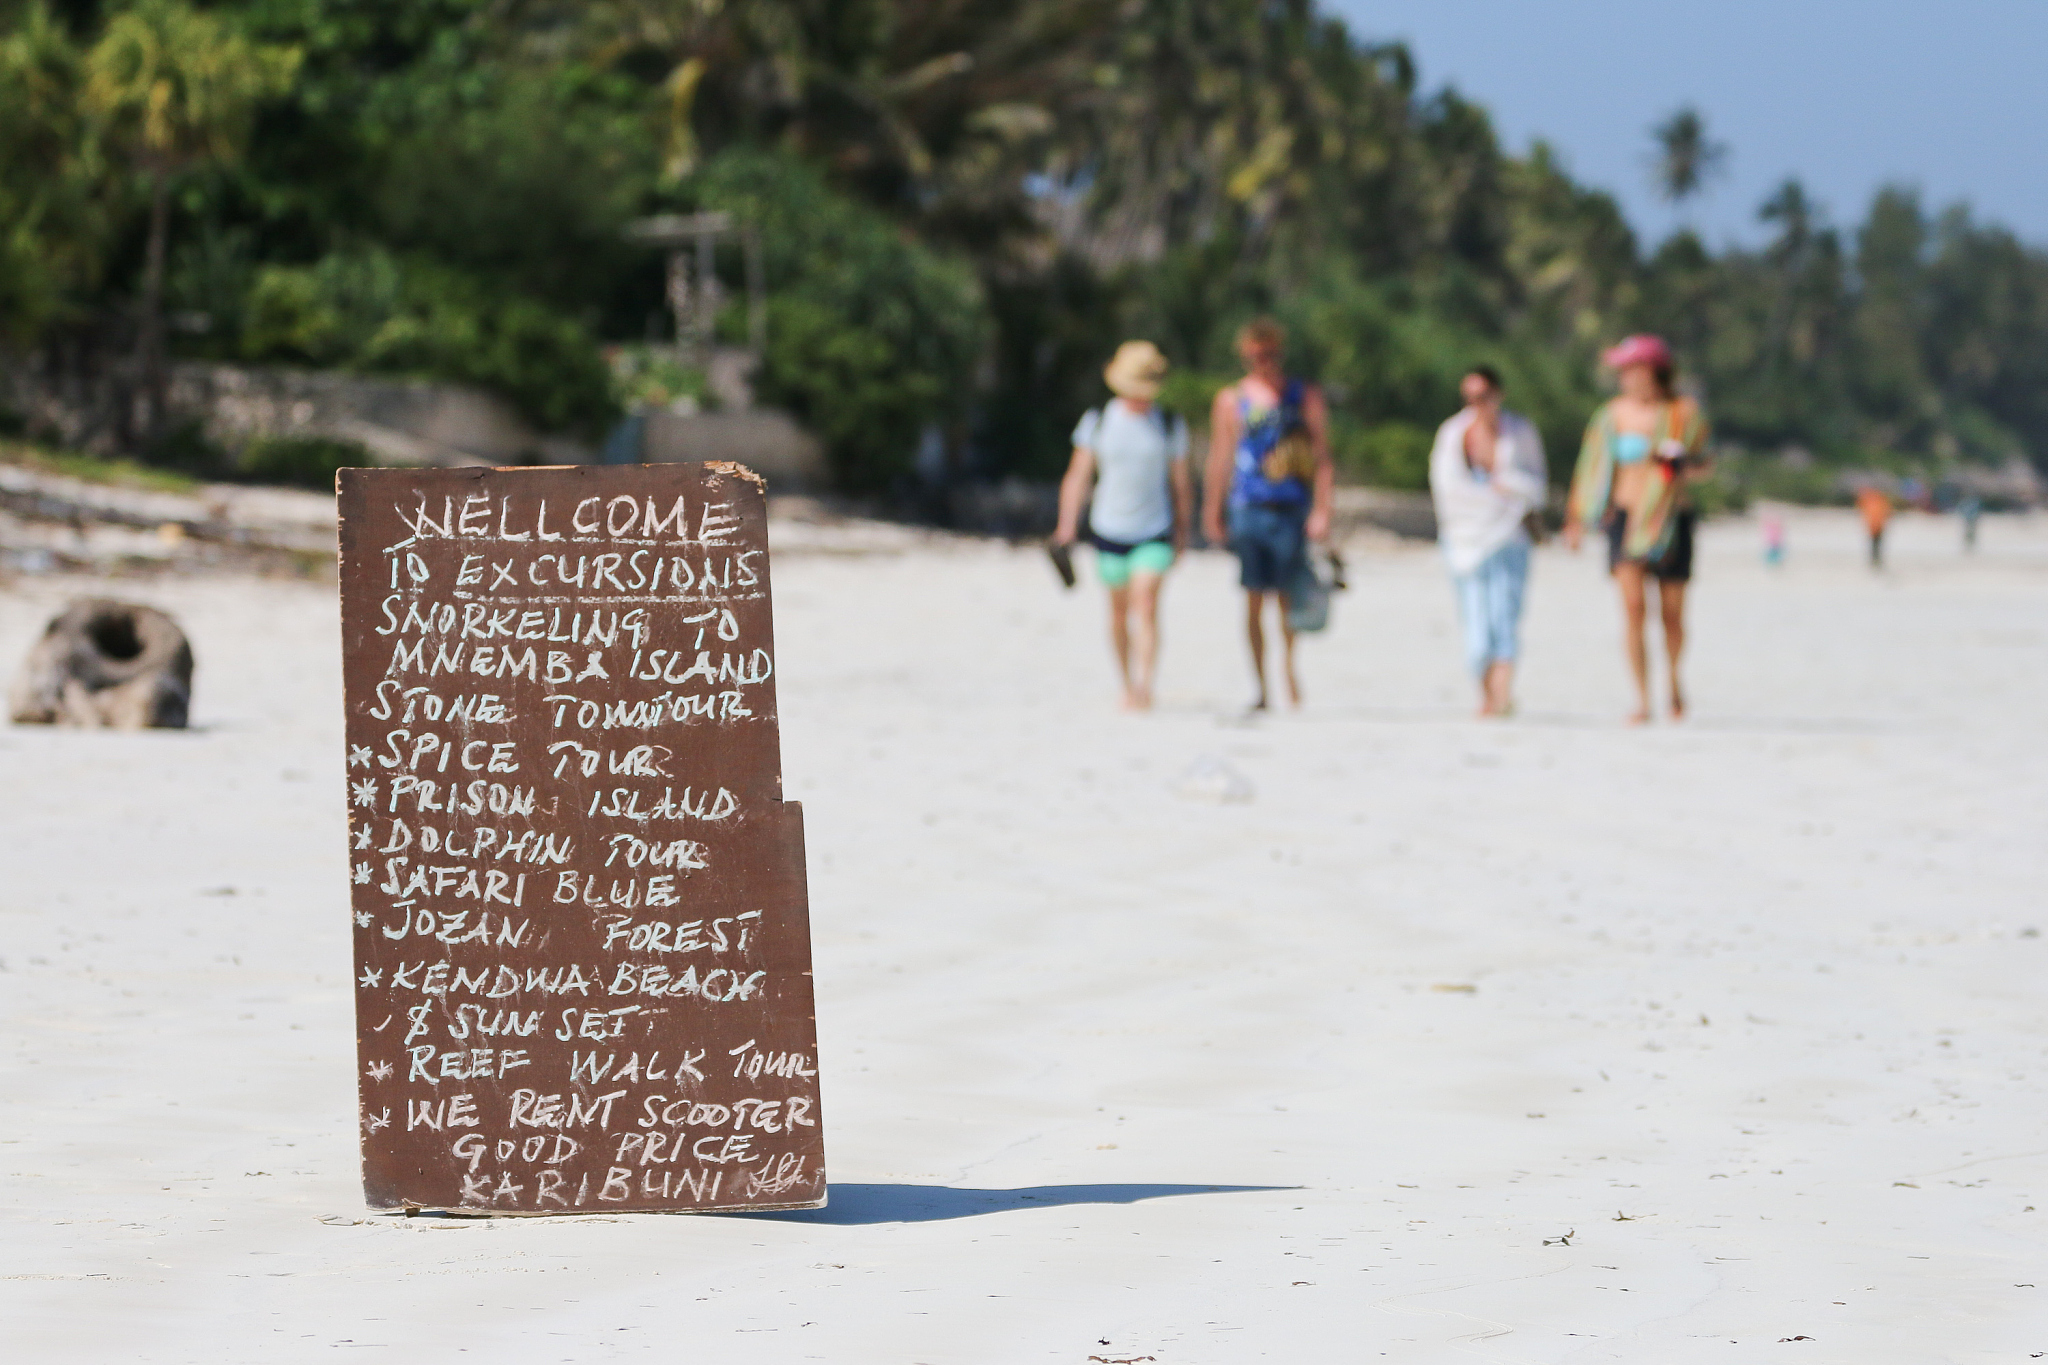 WELLCOME
TO EXCURSIONS
SNORKELING TO
MNEMBA ISLAND
STONE TOWN TOUR
* SPICE TOUR
* PRISON ISLAND
* DOLPHIN TOUR
* SAFARI BLUE
* JOZAN FOREST
* KENDWA BEACH
& SUN SET
* REEF WALK TOUR
* WE RENT SCOOTER
GOOD PRICE
KARIBUNI